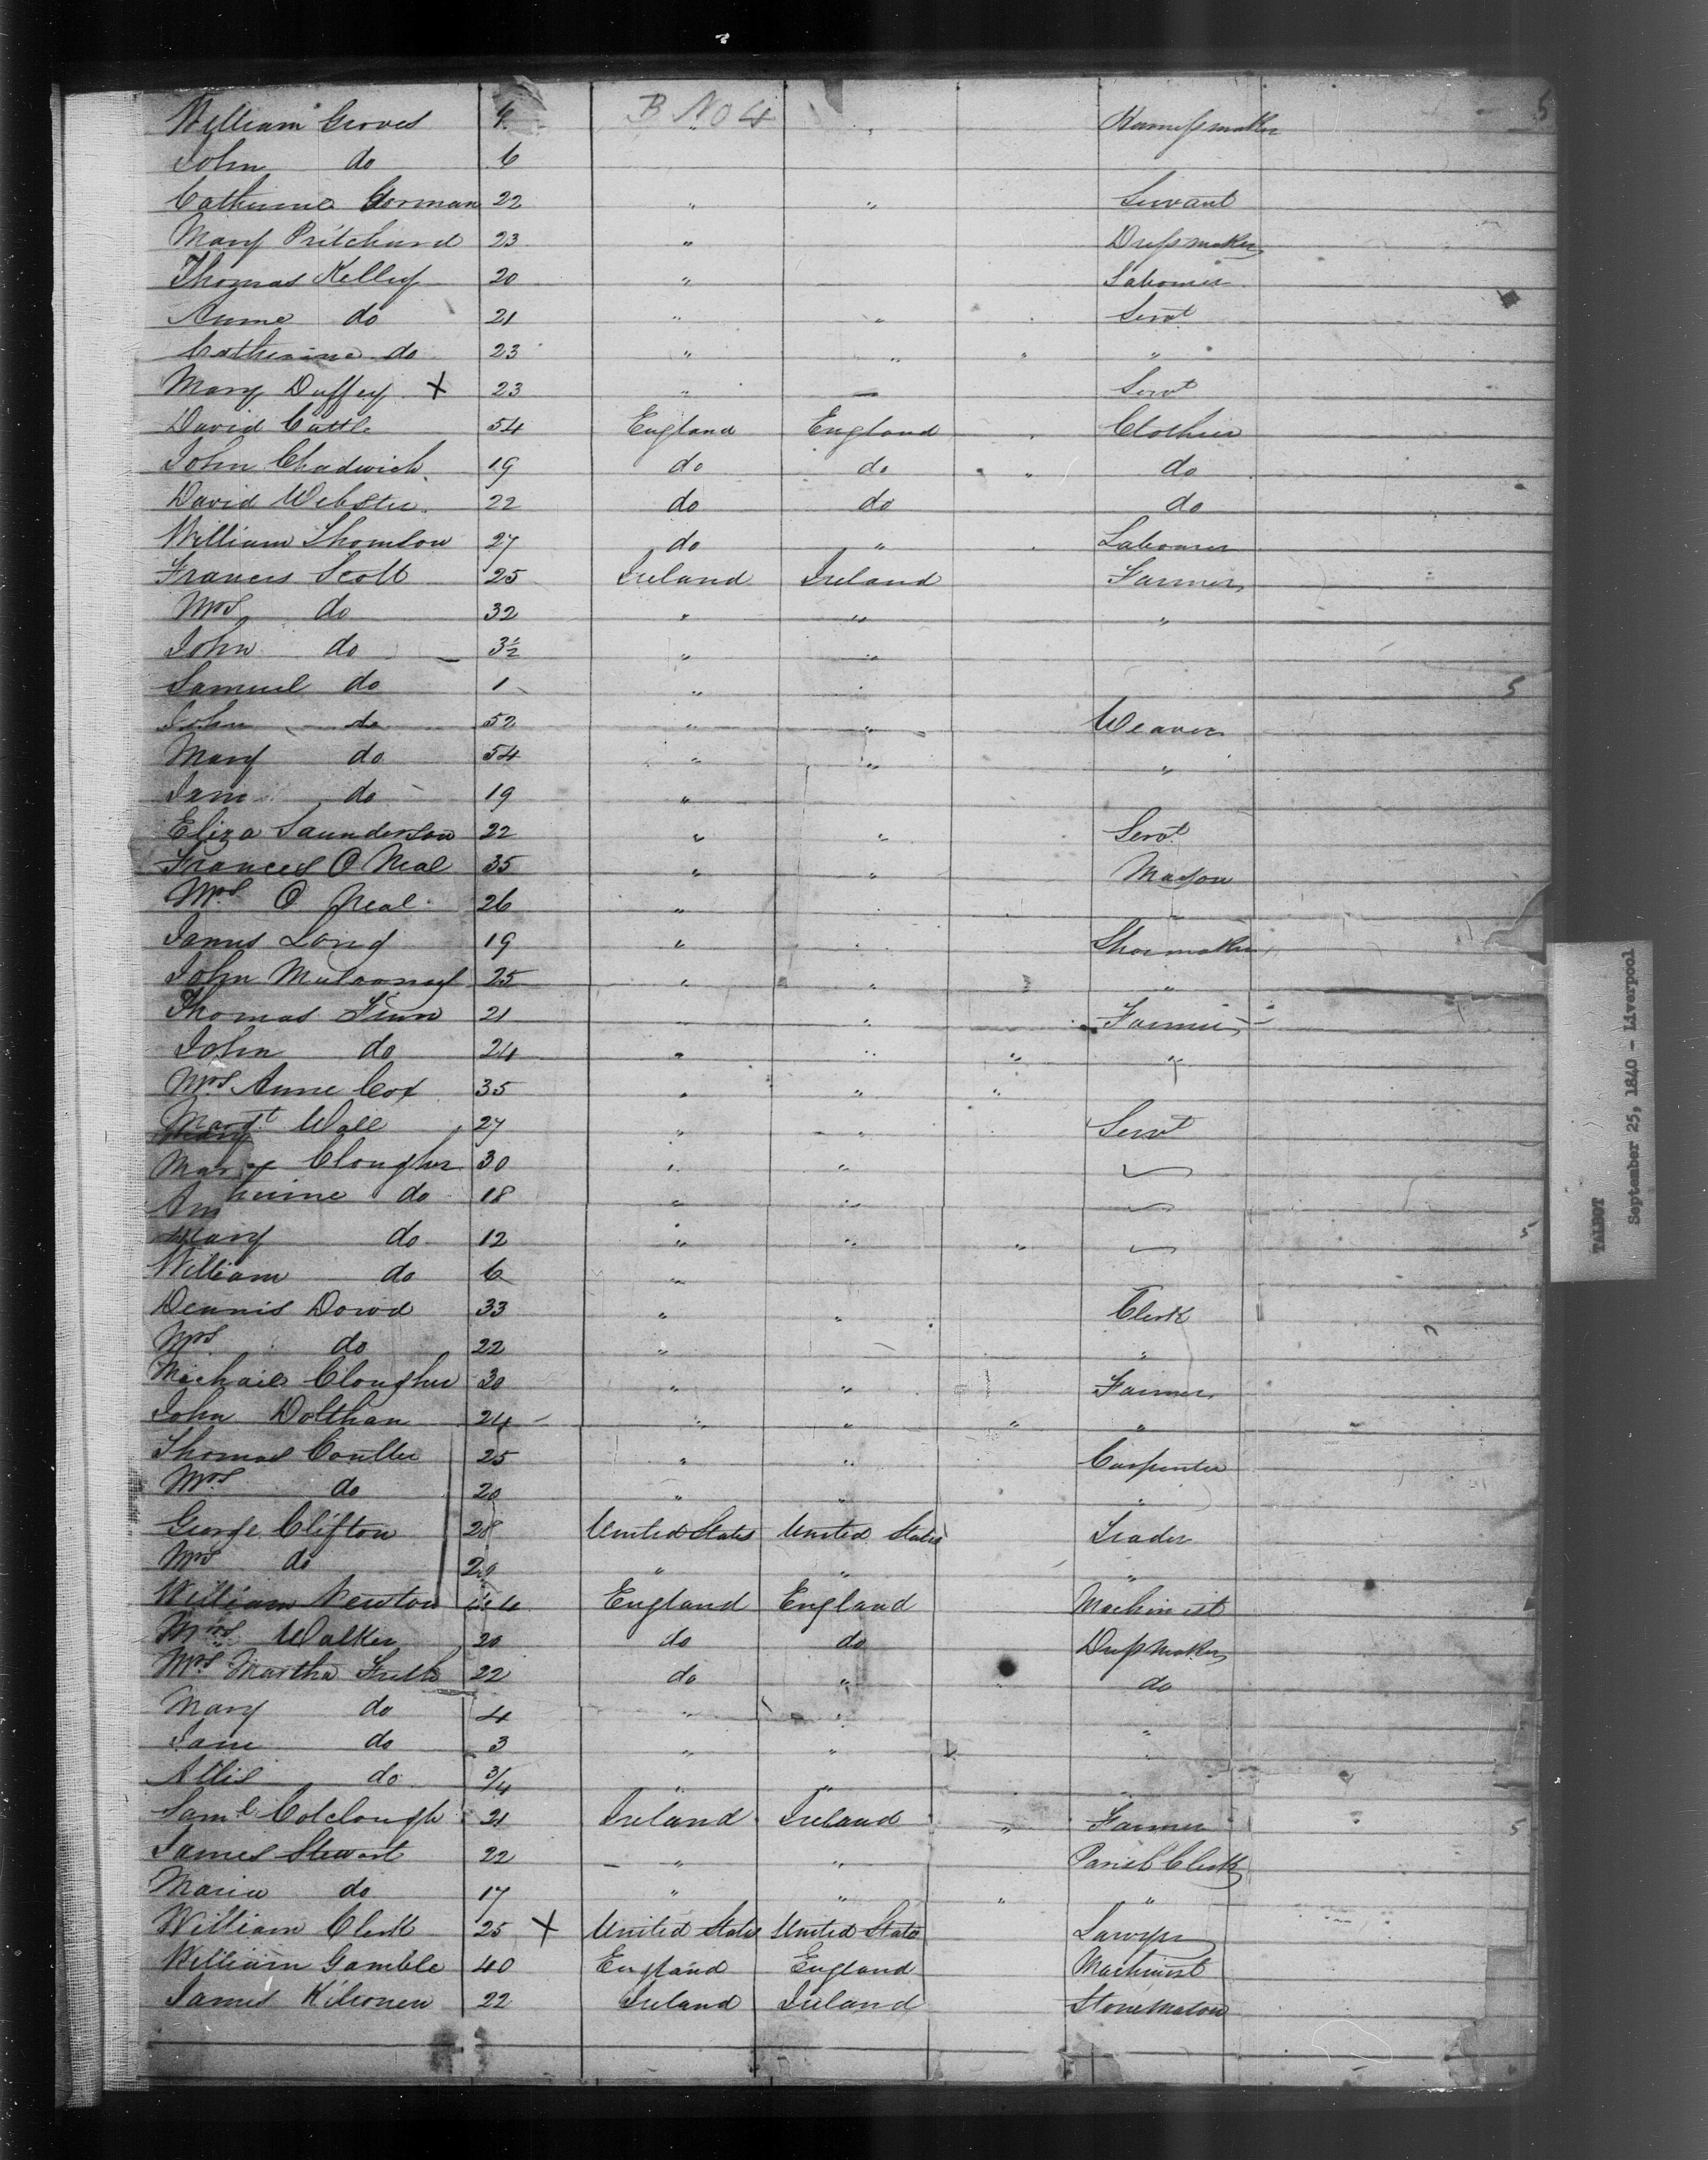 B No 4 5
William Groves Harnessmaker
John do 6
Catherine Gorman 22 " " Servant
Mary Pritchard 23 " Dressmaker
Thomas Kelley 20 " Labourer
Anne do 21 " " Servt
Catherine do 23 " " " "
Mary Duffey X 23 " Servt
David Cattle 54 England England Clothier
John Chadwick 19 do do " do
David Webster 22 do do do
William Thomson 27 do " Labourer
Francis Scott 25 Ireland Ireland Farmer
Mrs do 32 " " "
John do 3½ " "
Samuel do 1 " 5
John do 52 " " Weaver
Mary do 54 " " "
Jane do 19 "
Eliza Saunderson 22 " " Servt
Frances O Neal 35 " " Mason
Mrs O Neal 26 "
James Long 19 " Shoemaker
John Mulrooney 25 " " "
Thomas Finn 21 " Farmer
John do 24 " " " "
Mrs Anne Cox 35 " " "
Margt Wall 27 " " Servt
Clougher 30 " "
do 18 " "
Mary do 12 " " " 5
William do 6 "
Dennis Dowd 33 " " Clerk
Mrs do 22 " "
Michael Clougher 30 " " Farmer
John Dolthan 24 " " " "
Thomas Coulter 25 " " Carpenter
Mrs do 20 " " "
George Clifton 28 United States United States Trader
Mrs do " " "
William Newton 44 England England Machinist
Mrs Walker 20 do do Dressmaker
Mrs Martha Frith 22 do " do
Mary do 4 " " "
Jane do 3 " "
Allis do 3/4 " "
Saml Colclough 21 Ireland Ireland " Farmer 5
James Stewart 22 " " Parish Clerk
Maria do 17 " " " "
William Clark 25 X United States United States Lawyer
William Gamble 40 England England Machinist
James Kilronen 22 Ireland Ireland Stonemason
TALBOT
September 25, 1840 - Liverpool